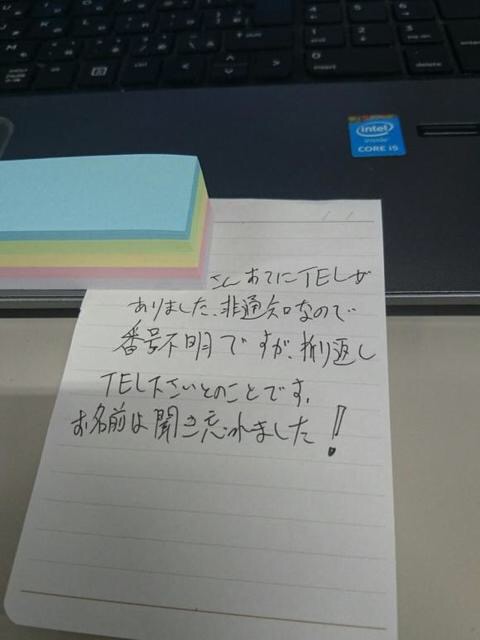 intel
inside
CORE i5
insert
delete
enter
さんあてにTELが
ありました、非通知なので
番号不明ですが、折り返し
TEL下さいとのことです。
お名前は聞き忘れました!